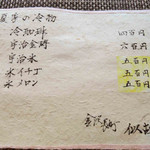 夏季の冷物
冷珈琲 四百円
宇治金時 六百円
宇治氷 五百円
氷イチゴ 五百円
氷メロン 五百円